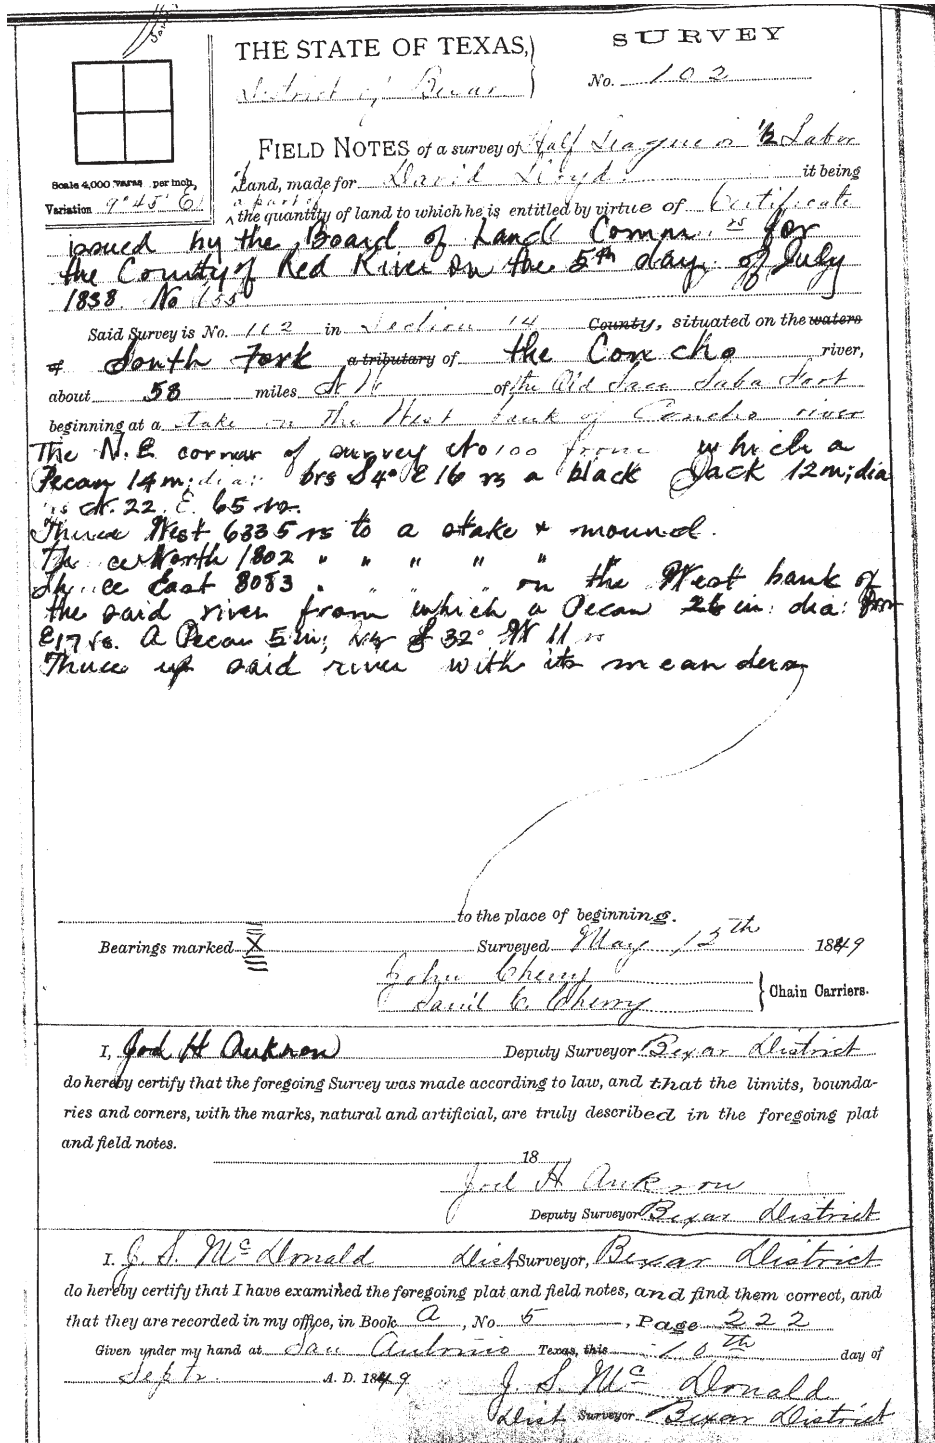 THE STATE OF TEXAS,
SURVEY
District of Bexar
No. 102
FIELD NOTES of a survey of Half League & 1/2 Labor
Land, made for David it being
Scale 4,000 varas per inch,
a part of
Variation 9° 45' E
the quantity of land to which he is entitled by virtue of Certificate
issued by the Board of Land Commrs for
the County of Red River on the 5th day of July
1838 No 155
Said Survey is No. 102 in Section 14 County, situated on the waters
of South Fork a tributary of the Concho river,
about 58 miles N W of the Old San Saba Fort
beginning at a stake on the West bank of Concho river
The N.E corner of survey No 100 from which a
Pecan 14 in; dia: brs S 4° E 16 vs a black Jack 12 in; dia
brs N. 22 E. 65 vs.
Thence West 6335 vs to a stake & mound.
Thence North 1802 " " " " "
Thence East 8083 " " " " on the West bank of
the said river from which a Pecan 26 in: dia:
E 17 vs. A Pecan 5 in; brs S 32° W 11 vs
Thence up said river with its meanders
to the place of beginning.
Bearings marked X Surveyed May 1849
John Cherry
David C. Cherry
Chain Carriers.
I, Deputy Surveyor Bexar District
do hereby certify that the foregoing Survey was made according to law, and that the limits, bounda-
ries and corners, with the marks, natural and artificial, are truly described in the foregoing plat
and field notes.
18
Deputy Surveyor Bexar District
I. J. S. McDonald Dist Surveyor, Bexar District
do hereby certify that I have examined the foregoing plat and field notes, and find them correct, and
that they are recorded in my office, in Book A, No 5, Page 222
Given under my hand at San Antonio Texas, this 10th day of
Septr. A. D. 1849
J. S. McDonald
Dist Surveyor Bexar District